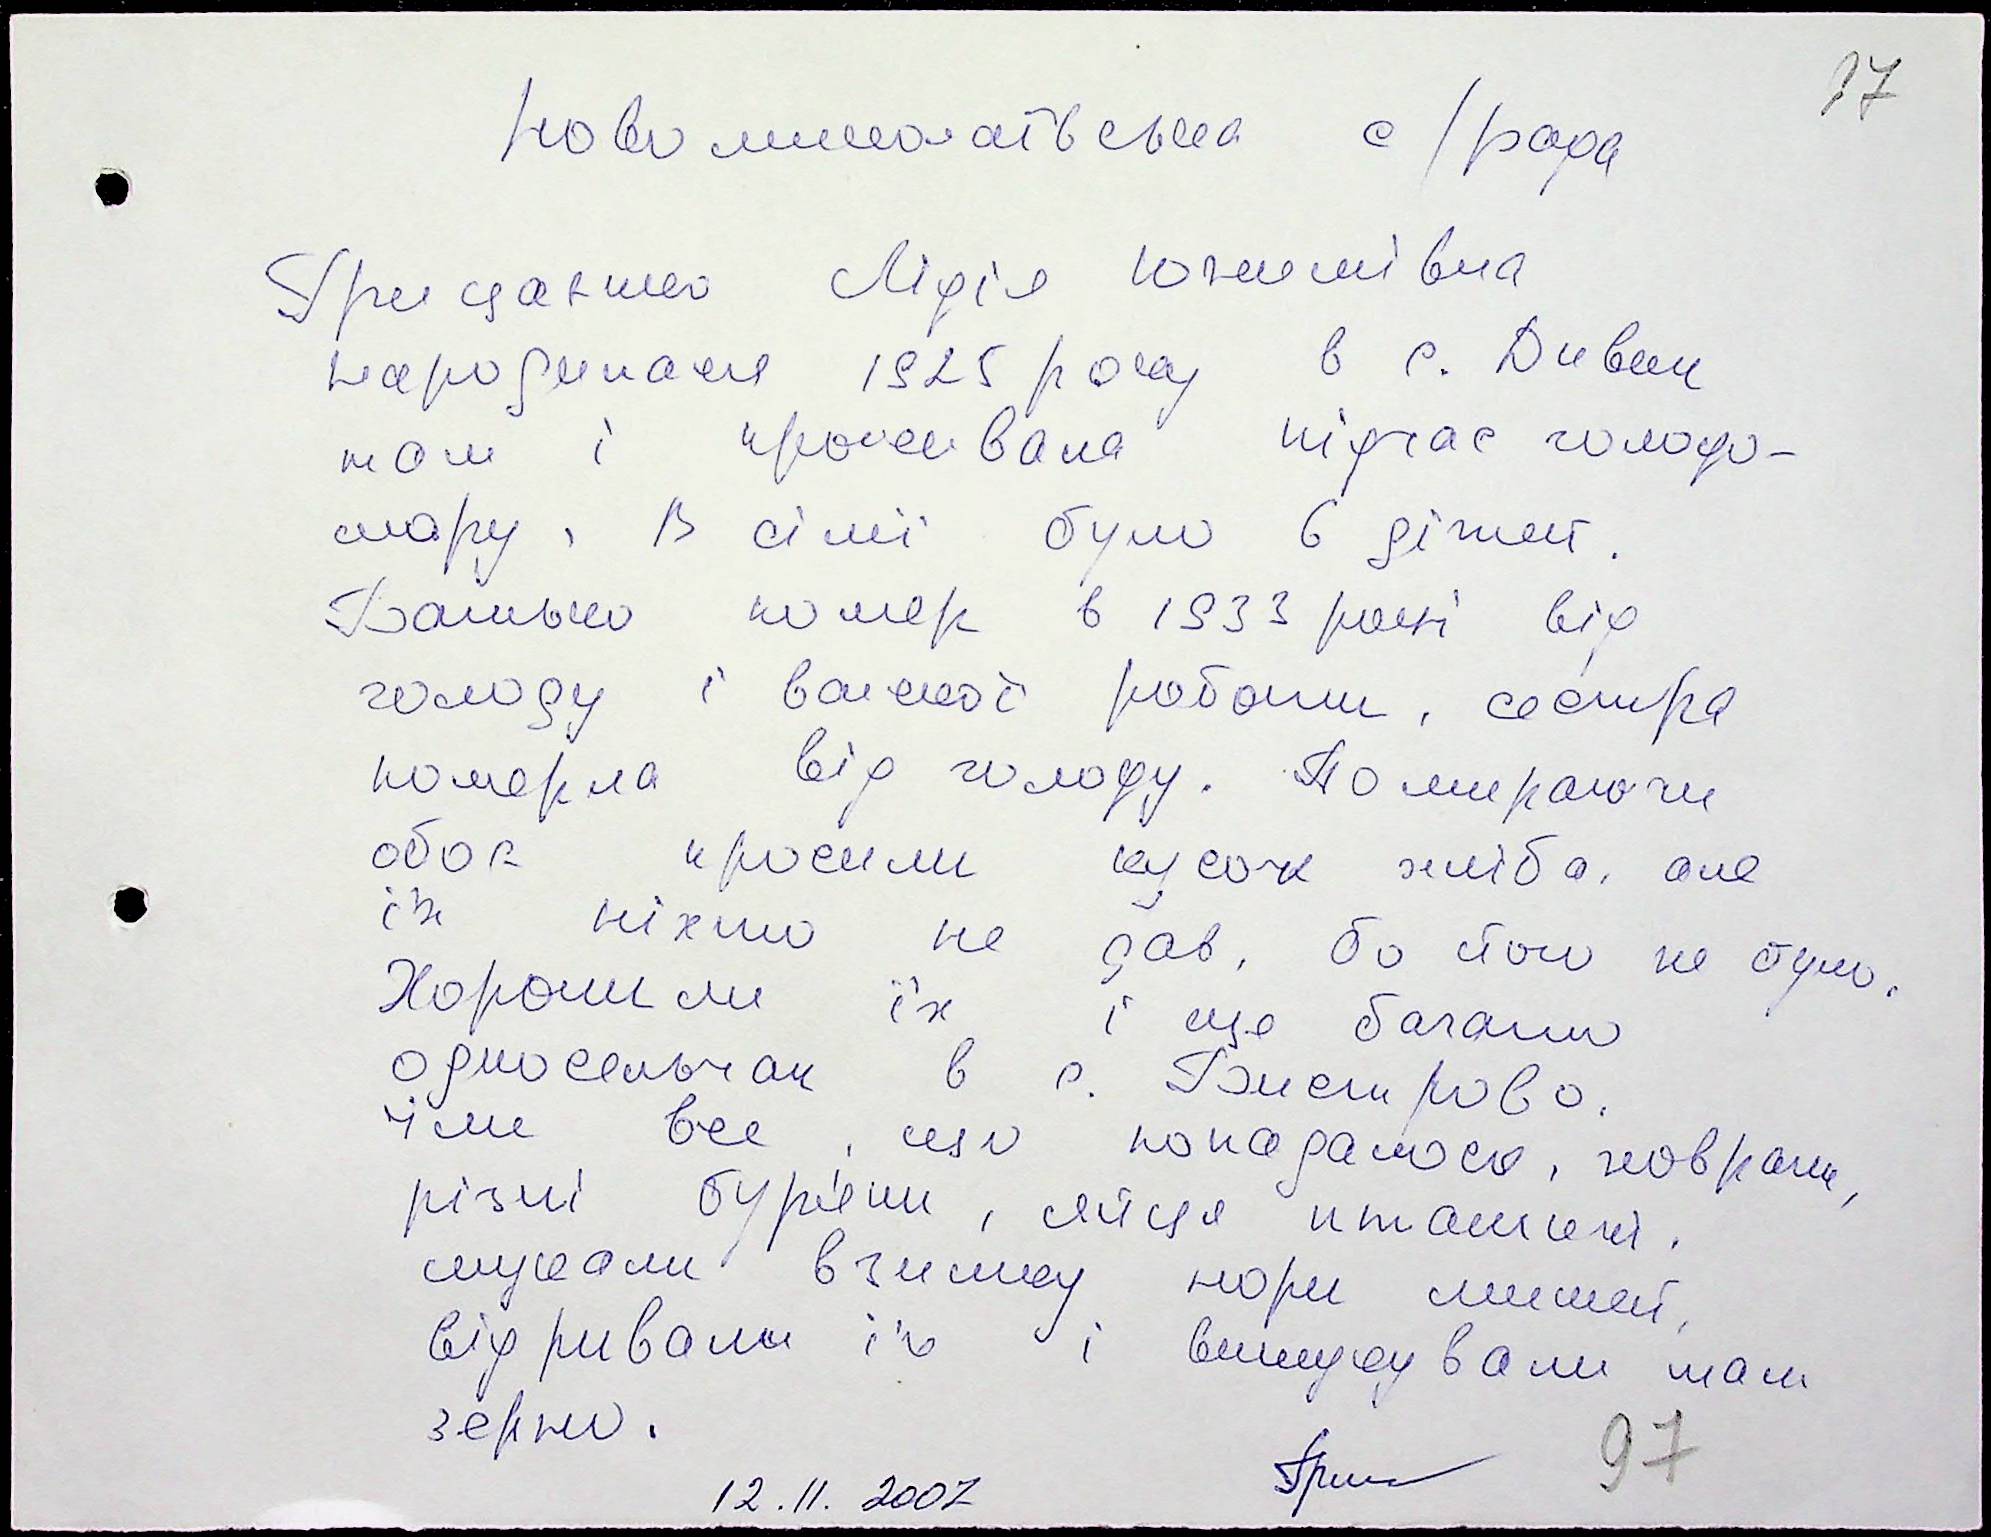 97
Новомиколаївська с/рада
Грицаєнко Лідія Юхимівна
народилася 1925 року в с. Дивни
там і проживала підчас голодо-
мору. В сімї було 6 дітей.
Батько помер в 1933 році від
голоду і важкої роботи, сестра
померла від голоду. Помираючи
обоє просили кусок хліба, але
їх ніхто не дав, бо його не було.
Хоронили їх і ще багато
односельчан в с. Бистрово.
Їли все, що попадалося, ховрахи,
різні буряни, яйця пташині.
шукали взимку нори мишей,
відривали їх і вишукували там
зерно.
12.11.2007 Гриц 97